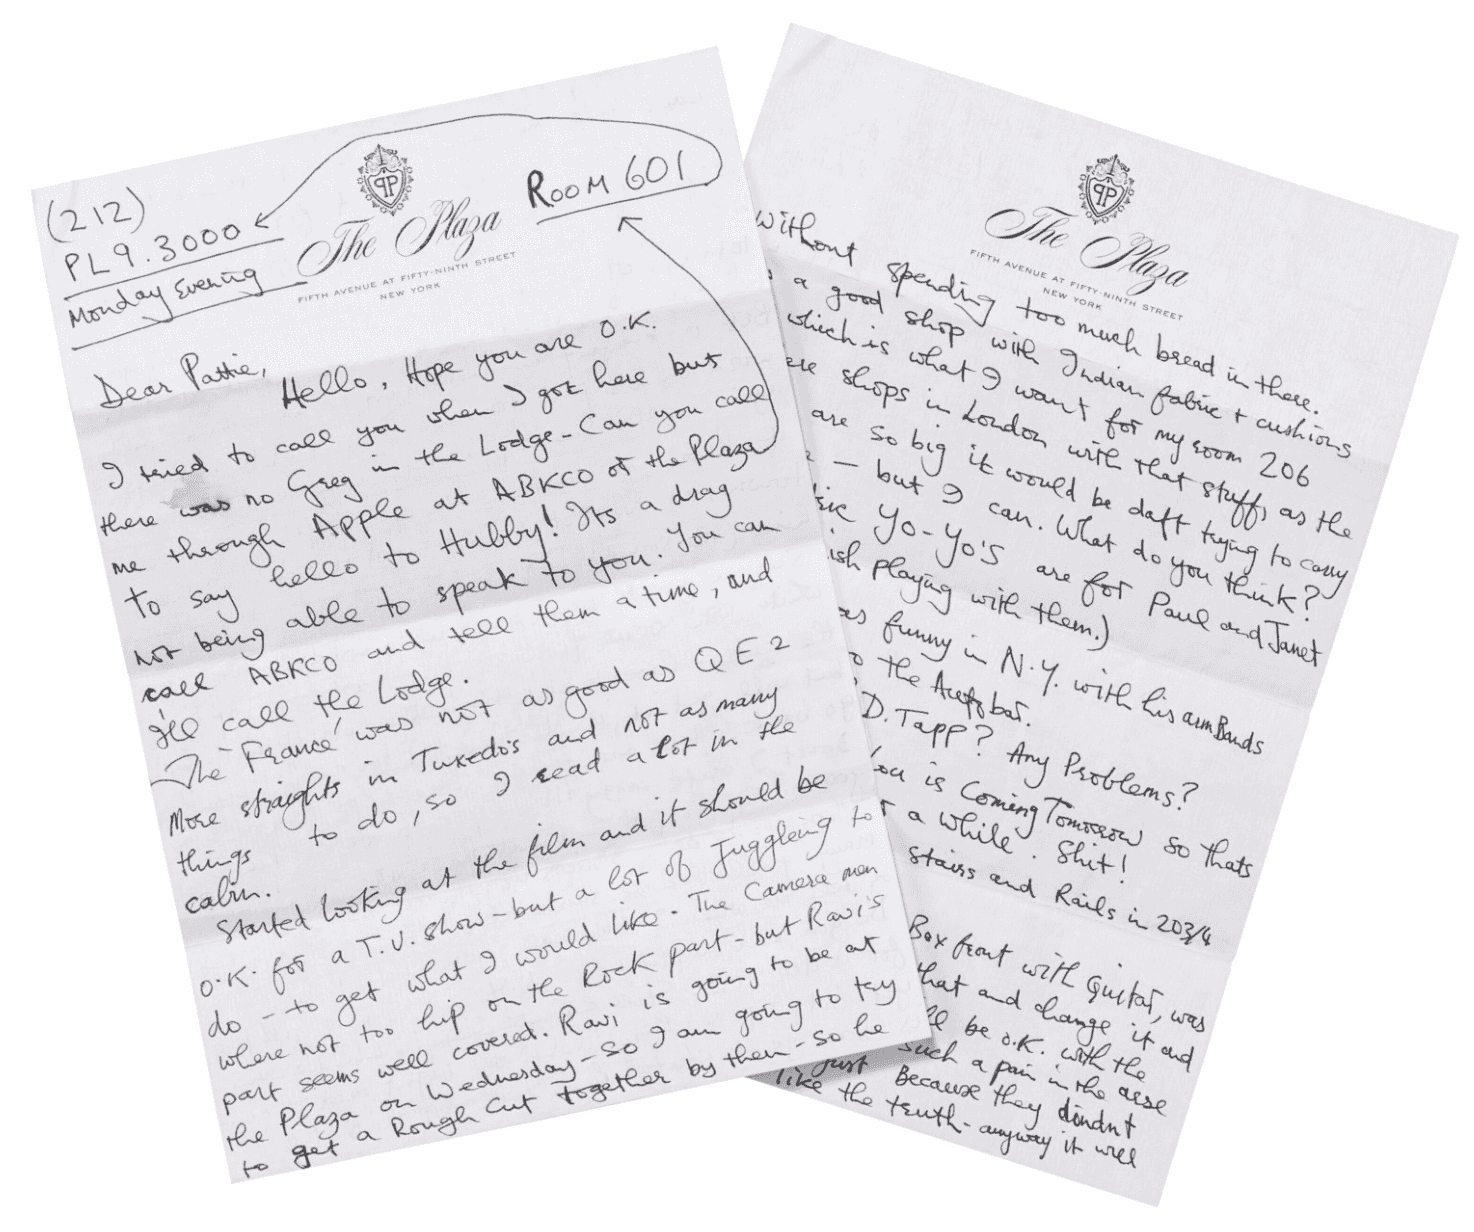 (212)
PL9.3000
Monday Evening
Room 601
The Plaza
FIFTH AVENUE AT FIFTY-NINTH STREET
NEW YORK
Dear Pattie,
Hello, Hope you are O.K.
I tried to call you when I got here but
there was no Greg in the Lodge - Can you call
me through Apple at ABKCO or the Plaza
to say hello to Hubby! Its a drag
not being able to speak to you. You can
call ABKCO and tell them a time, and
I'll call the Lodge.
The 'France' was not as good as QE2
More straights in Tuxedo's and not as many
things to do, so I read a lot in the
cabin.
Started looking at the film and it should be
O.K. for a T.V. show - but a lot of Juggleing to
do - to get what I would like. The Camera men
where not too hip on the Rock part - but Ravi's
part seems well covered. Ravi is going to be at
the Plaza on Wednesday - so I am going to try
to get a Rough Cut together by then - so he
The Plaza
FIFTH AVENUE AT FIFTY-NINTH STREET
NEW YORK
without spending too much bread in there.
a good shop with Indian fabric + cushions
which is what I want for my room 206
shops in London with that stuff, as the
are so big it would be daft trying to carry
- but I can. What do you think?
Yo-Yo's are for Paul and Janet
playing with them.)
funny in N.Y. with his arm Bands
the Autobar.
D. Tapp? Any Problems?
is Coming Tomorrow so thats
a while. Shit!
Stairs and Rails in 203/4
Box front with Guitar, was
that and change it and
be O.K. with the
such a pain in the arse
just Because they dindnt
like the truth - anyway it will